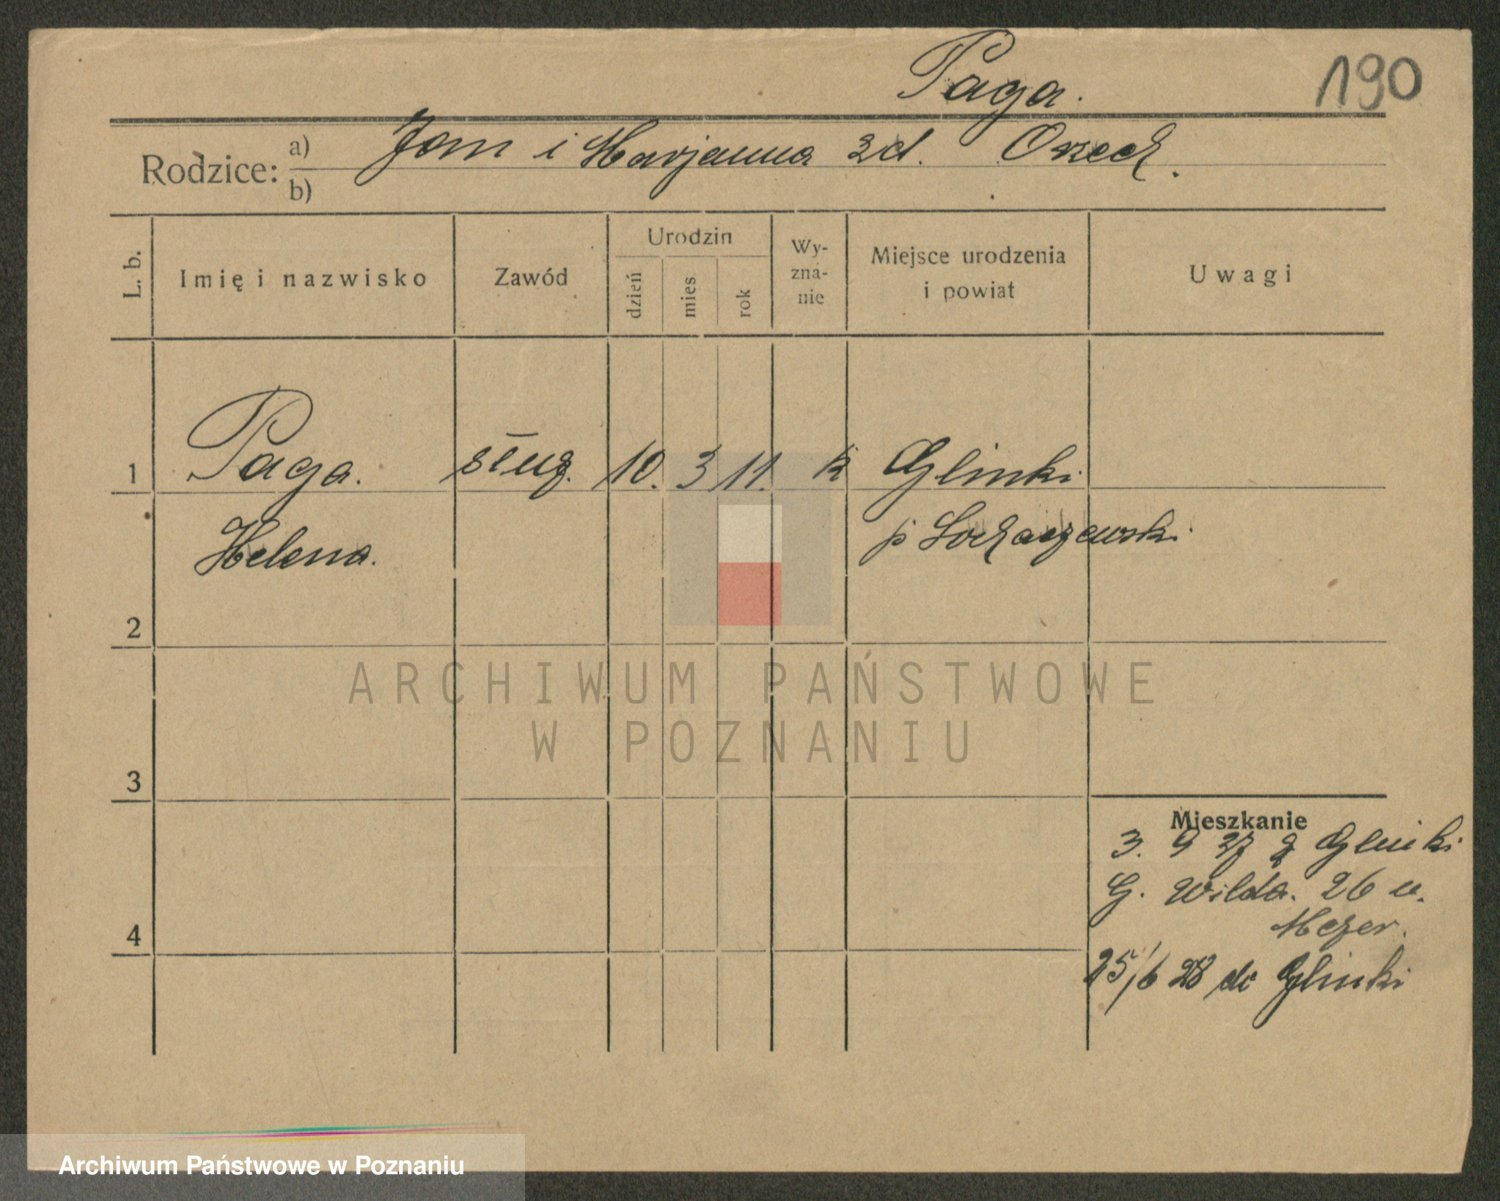 Paga. 190
Rodzice: a) Jan i Marjanna zd. Orzech.
b)
L. b. Imię i nazwisko Zawód Urodzin dzień mies rok Wy-zna-nie Miejsce urodzenia i powiat Uwagi
1 Paga. służ. 10. 3 11. k Glinki
Helena. p Sochaczewski.
2
ARCHIWUM PAŃSTWOWE
W POZNANIU
3
Mieszkanie
3. 9 27 z Glinki
G. Wilda. 26 u.
4
25/6 28 do Glinki
Archiwum Państwowe w Poznaniu